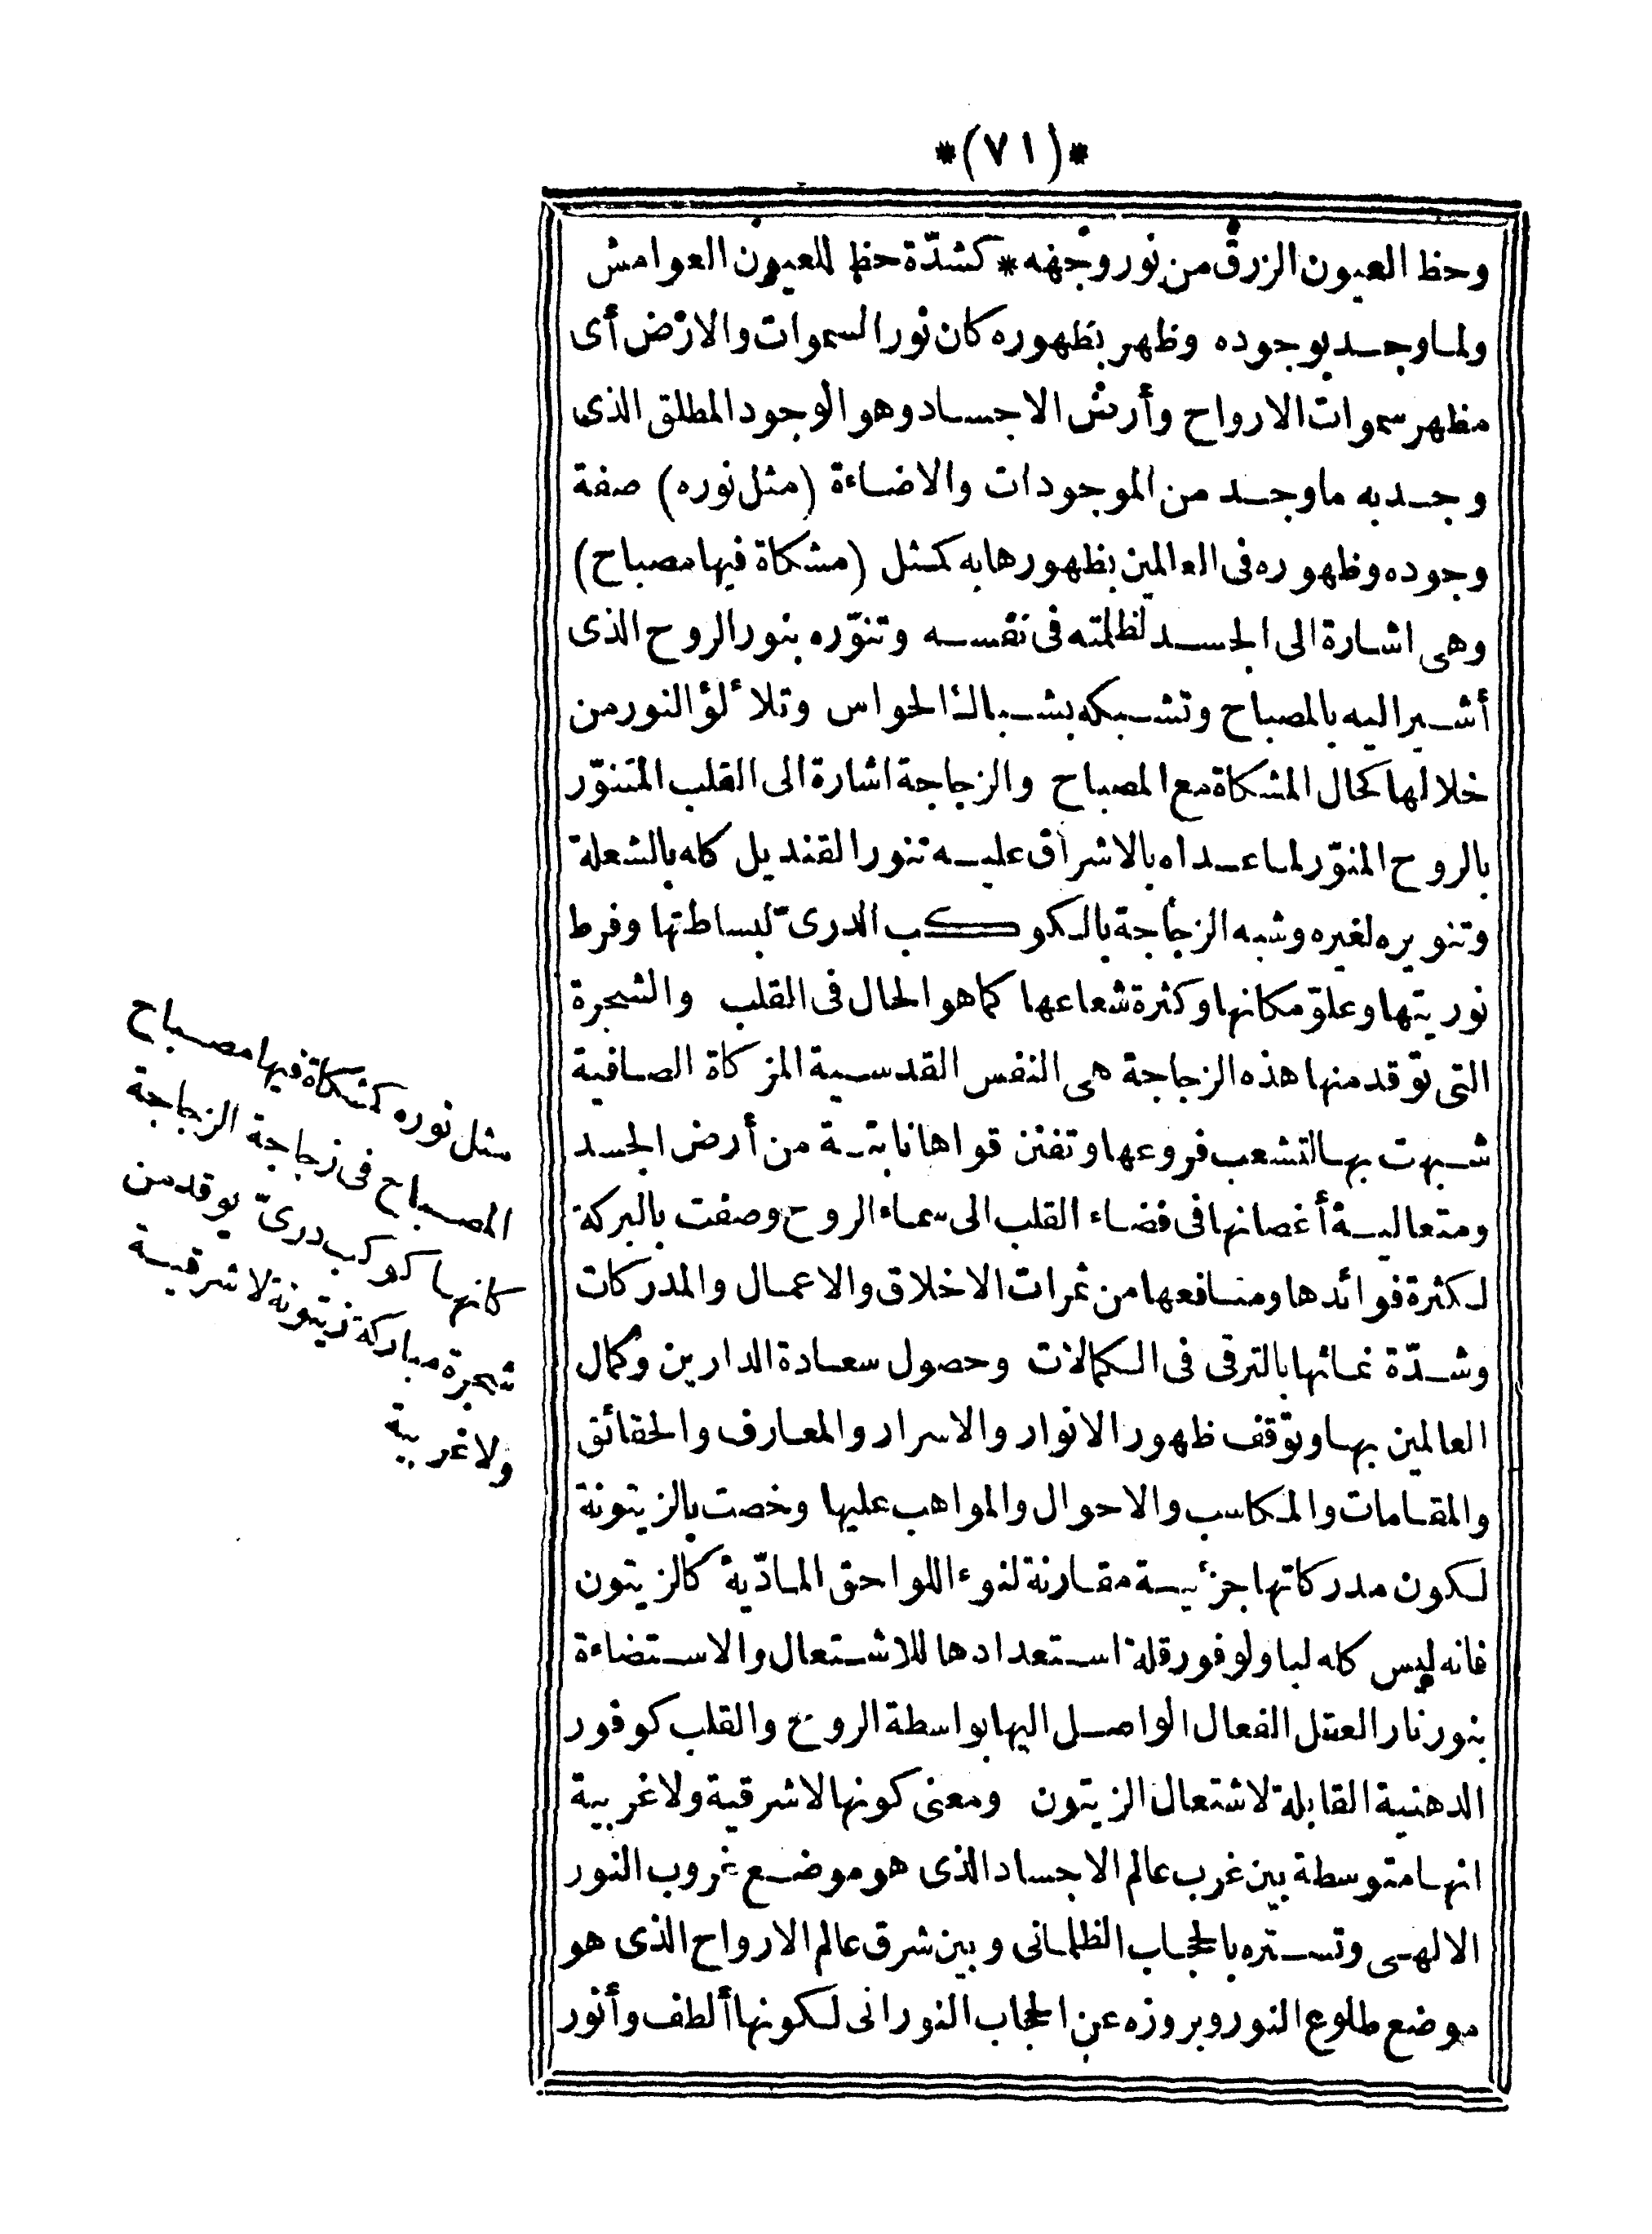 *(٧١)*
وحظ العيون الزرق من نور وجهه * كشدّة حظ للعيون العوامش
ولما وجد بوجوده وظهر بظهوره كان نور السموات والارض أى
مظهر سموات الارواح وأرض الاجساد وهو الوجود المطلق الذى
وجد به ماوجد من الموجودات والاضاءة (مثل نوره) صفة
وجوده وظهوره فى العالمين بظهورها به كمثل (مشكاة فيها مصباح)
وهى اشارة الى الجسد لظلمته فى نفسه وتنوّره بنور الروح الذى
أشير اليه بالمصباح وتشبكه بشباك الحواس وتلا ٔلؤ النور من
خلالها كحال المشكاة مع المصباح والزجاجة اشارة الى القلب المتنوّر
بالروح المنوّر لماعداه بالاشراق عليه تنور القنديل كله بالشعلة
وتنويره لغيره وشبه الزجاجة بالكوكب الدرىّ لبساطتها وفرط
نوريتها وعلوّ مكانها وكثرة شعاعها كما هو الحال فى القلب والشجرة
التى توقد منها هذه الزجاجة هى النفس القدسية المزكاة الصافية
شبهت بها لتشعب فروعها وتفنن قواها نابتة من أرض الجسد
ومتعالية أغصانها فى فضاء القلب الى سماء الروح وصفت بالبركة
لكثرة فوائدها ومنافعها من ثمرات الاخلاق والاعمال والمدركات
وشدّة نمائها بالترقى فى الكمالات وحصول سعادة الدارين وكمال
العالمين بها وتوقف ظهور الانوار والاسرار والمعارف والحقائق
والمقامات والمكاسب والاحوال والمواهب عليها وخصت بالزيتونة
لكون مدركاتها جزئية مقارنة لنوء اللواحق المادّية كالزيتون
فانه ليس كله لبا ولوفور قلة استعدادها للاشتعال والاستضاءة
بنور نار العقل الفعال الواصل اليها بواسطة الروح والقلب كوفور
الدهنية القابلة لاشتعال الزيتون ومعنى كونها لاشرقية ولاغربية
انها متوسطة بين غرب عالم الاجساد الذى هو موضع غروب النور
الالهى وتستره بالحجاب الظلمانى وبين شرق عالم الارواح الذى هو
موضع طلوع النور وبروزه عن الحجاب النورانى لكونها ألطف وأنور
مثل نوره كمشكاة فيها مصباح
المصباح فى زجاجة الزجاجة
كانها كوكب درىّ يوقد من
شجرة مباركة زيتونة لاشرقية
ولاغربية